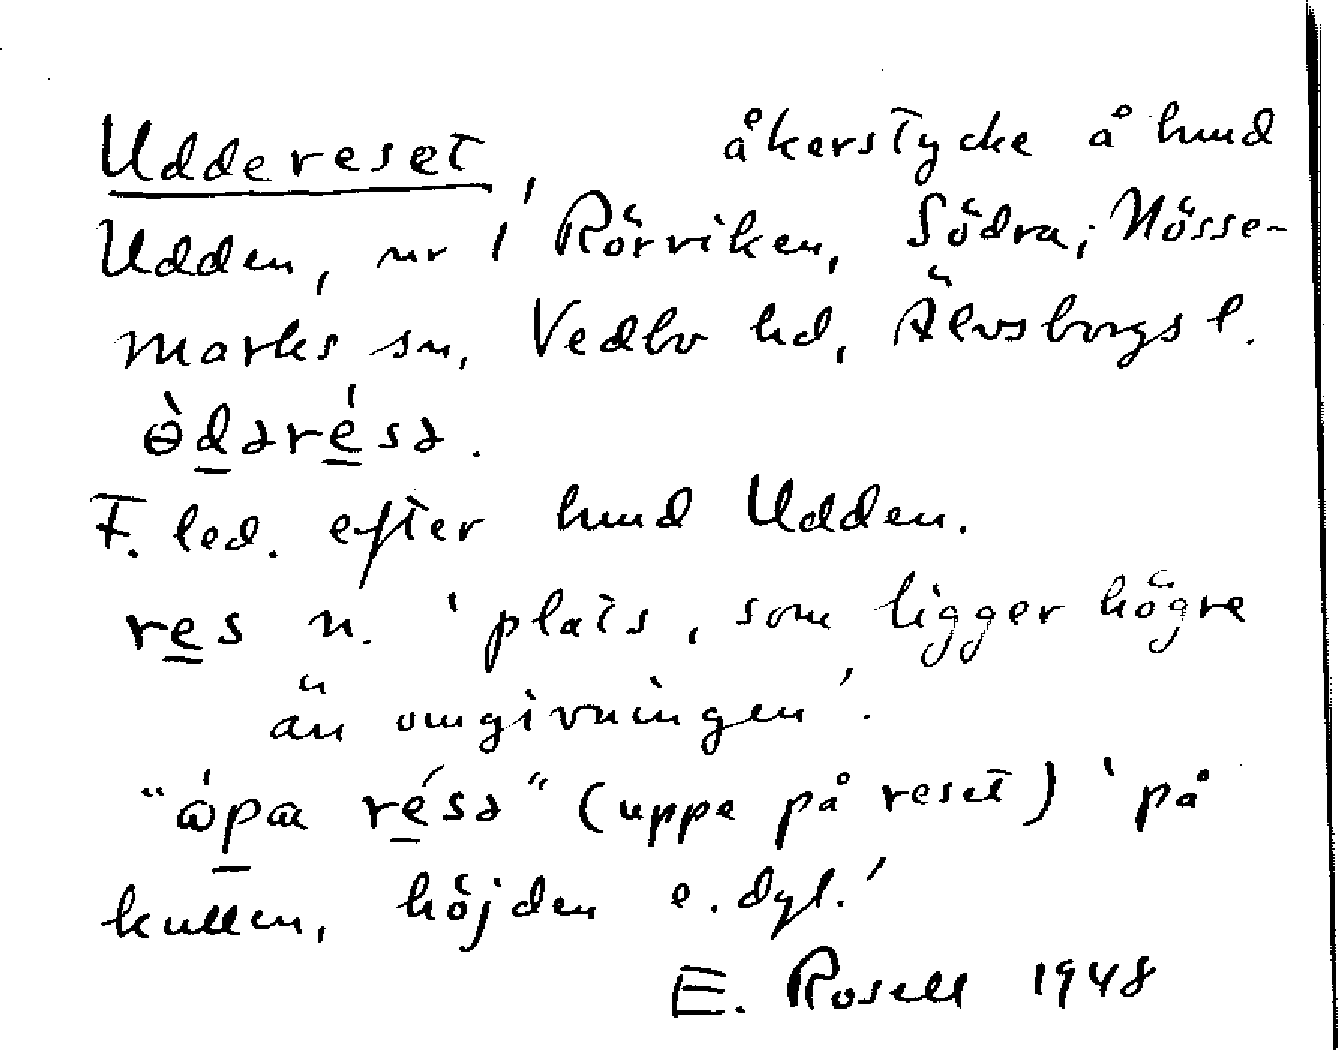 Uddereset, åkerstycke å hmd
Udden, ur 1 Rörviken, Södra; Nösse-
marks sn, Vedbo hd, Älvsborgs l.
ɵ̀dərésə.
F. led. efter hmd Udden.
res n. 'plats, som ligger högre
än omgivningen'.
"ώpα résə" (uppe på reset) 'på
kullen, höjden e. dyl.'
E. Rosell 1948